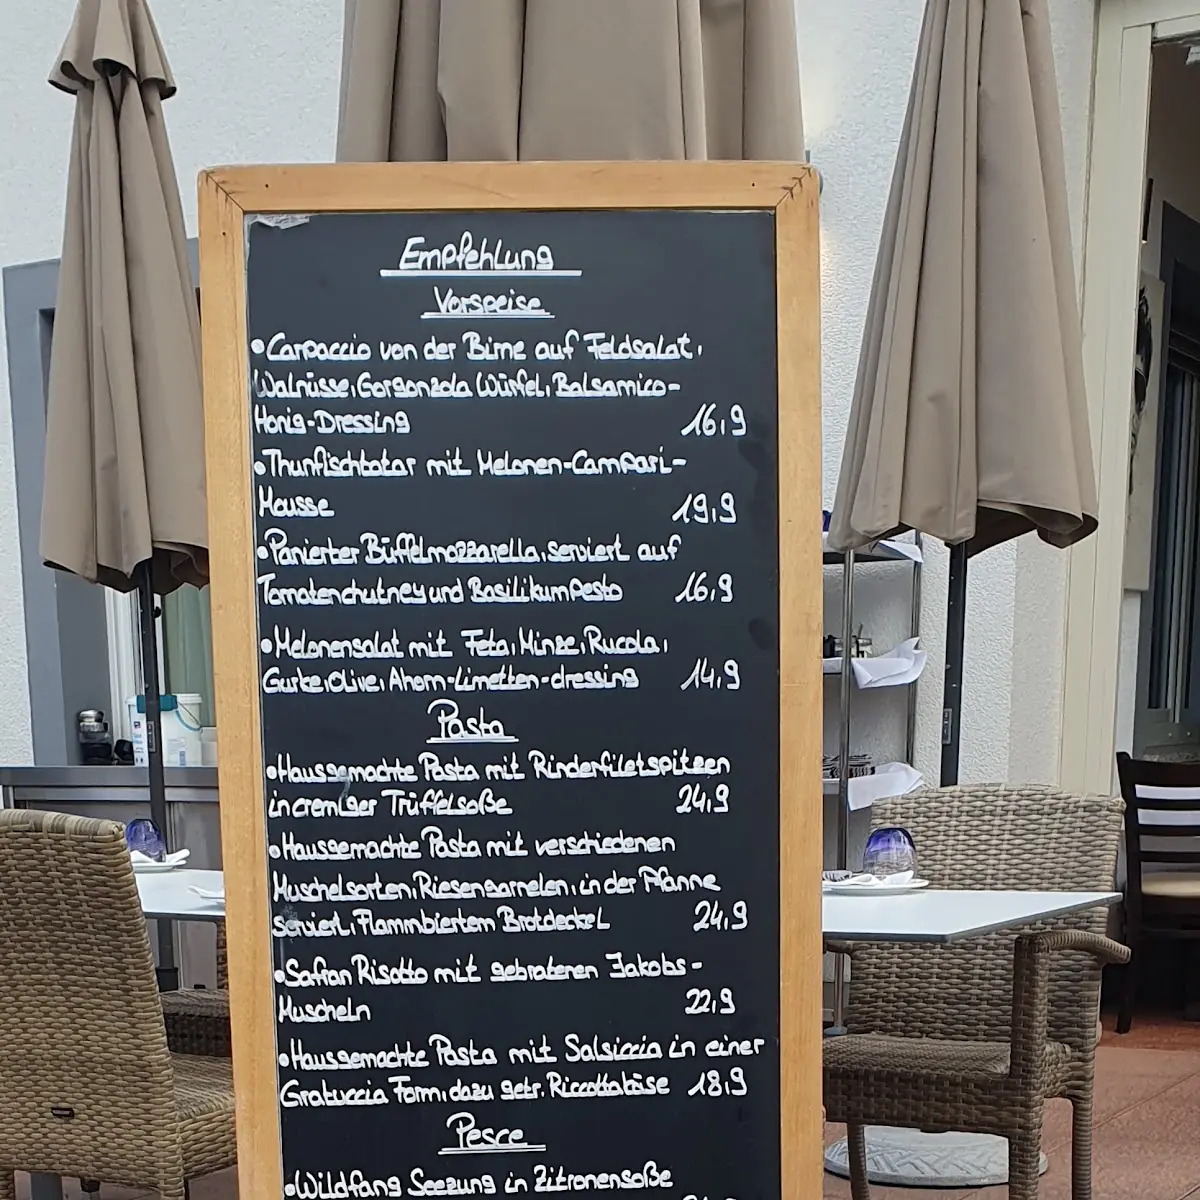 Empfehlung
Vorspeise
•Carpaccio von der Birne auf Feldsalat,
Walnüsse, Gorgonzola Würfel, Balsamico-
Honig-Dressing 16,9
•Thunfischtatar mit Melonen-Campari-
Mousse 19,9
•Panierter Büffelmozzarella, serviert auf
Tomatenchutney und Basilikumpesto 16,9
•Melonensalat mit Feta, Minze, Rucola,
Gurke, Olive, Ahorn-Limetten-dressing 14,9
Pasta
•Hausgemachte Pasta mit Rinderfiletspitzen
in cremiger Trüffelsoße 24,9
•Hausgemachte Pasta mit verschiedenen
Muschelsorten, Riesengarnelen, in der Pfanne
serviert, Flammbiertem Brotdeckel 24,9
•Safran Risotto mit gebratenen Jakobs-
Muscheln 22,9
•Hausgemachte Pasta mit Salsiccia in einer
Gratuccia Form, dazu getr. Riccottakäse 18,9
Pesce
•Wildfang Seezung in Zitronensoße